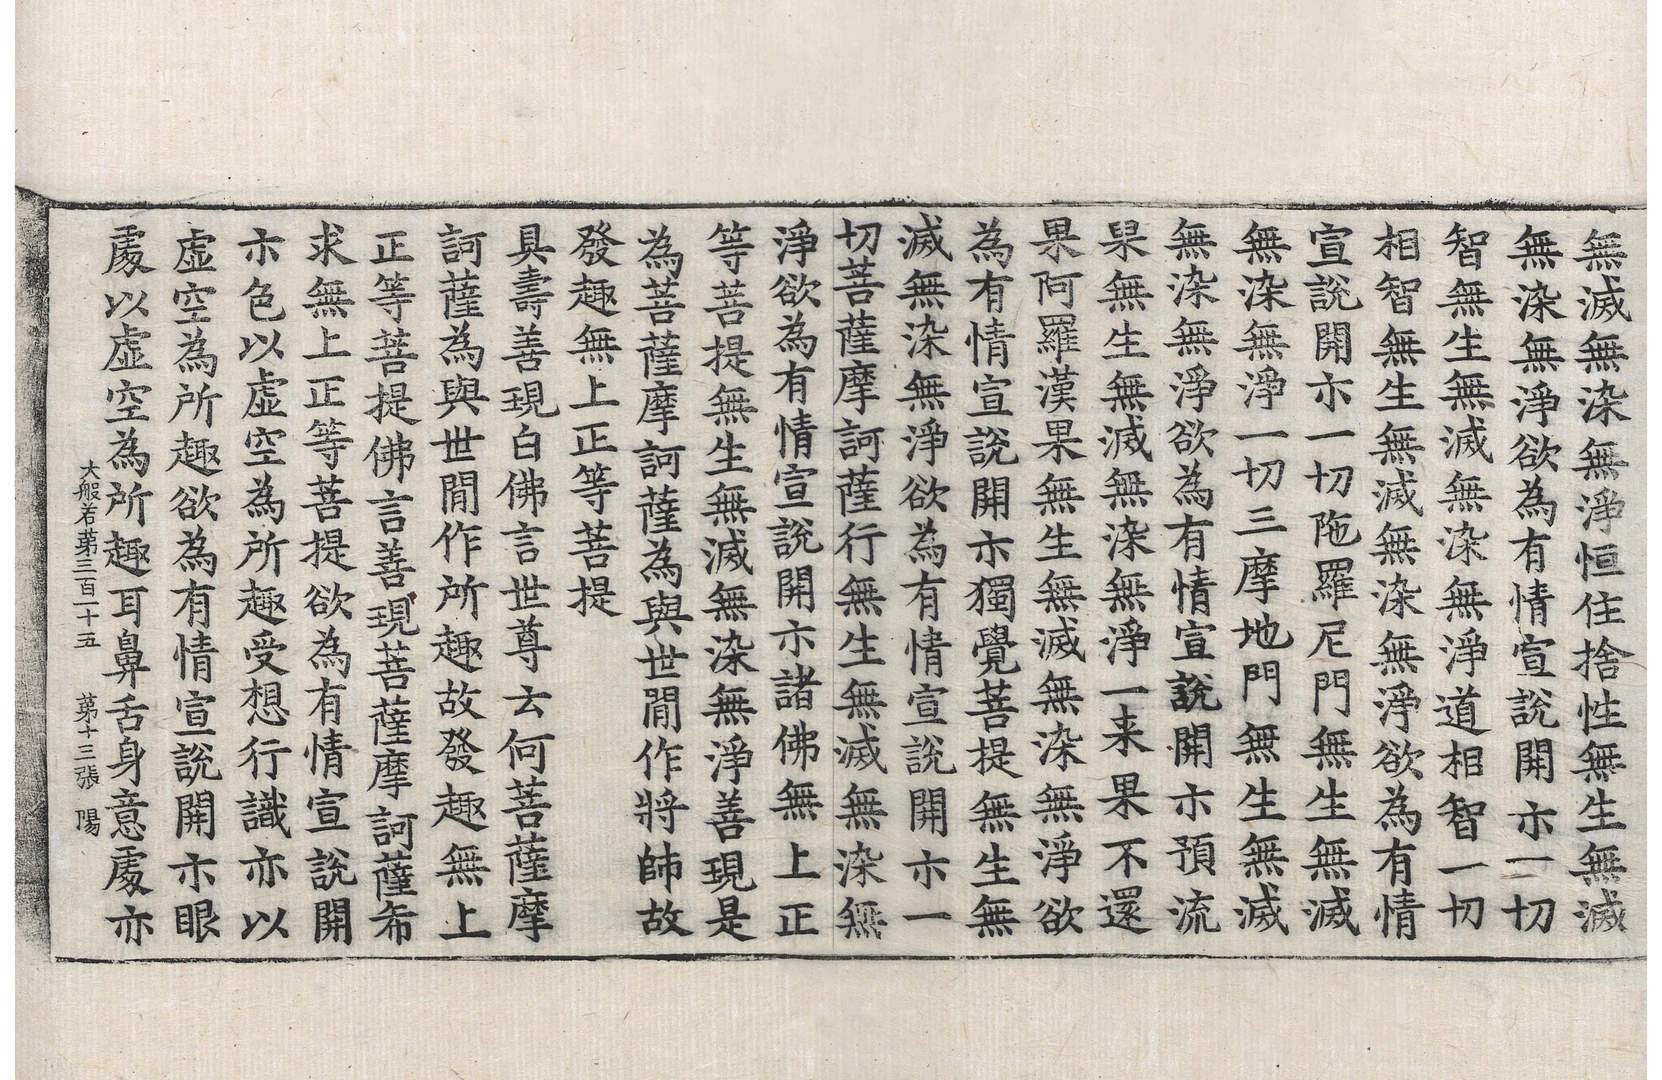 無滅無染無淨恒住捨性無生無滅
無染無淨欲為有情宣說開示一切
智無生無滅無染無淨道相智一切
相智無生無滅無染無淨欲為有情
宣說開示一切陁羅尼門無生無滅
無染無淨一切三摩地門無生無滅
無染無淨欲為有情宣說開示預流
果無生無滅無染無淨一来果不還
果阿羅漢果無生無滅無染無淨欲
為有情宣說開示獨覺菩提無生無
滅無染無淨欲為有情宣說開示一
切菩薩摩訶薩行無生無滅無染無
淨欲為有情宣說開示諸佛無上正
等菩提無生無滅無染無淨善現是
為菩薩摩訶薩為與世間作將帥故
發趣無上正等菩提
具壽善現白佛言世尊云何菩薩摩
訶薩為與世間作所趣故發趣無上
正等菩提佛言善現菩薩摩訶薩希
求無上正等菩提欲為有情宣說開
示色以虛空為所趣受想行識亦以
虛空為所趣欲為有情宣說開示眼
處以虛空為所趣耳鼻舌身意處亦
大般若苐三百一十五 苐十三張 陽